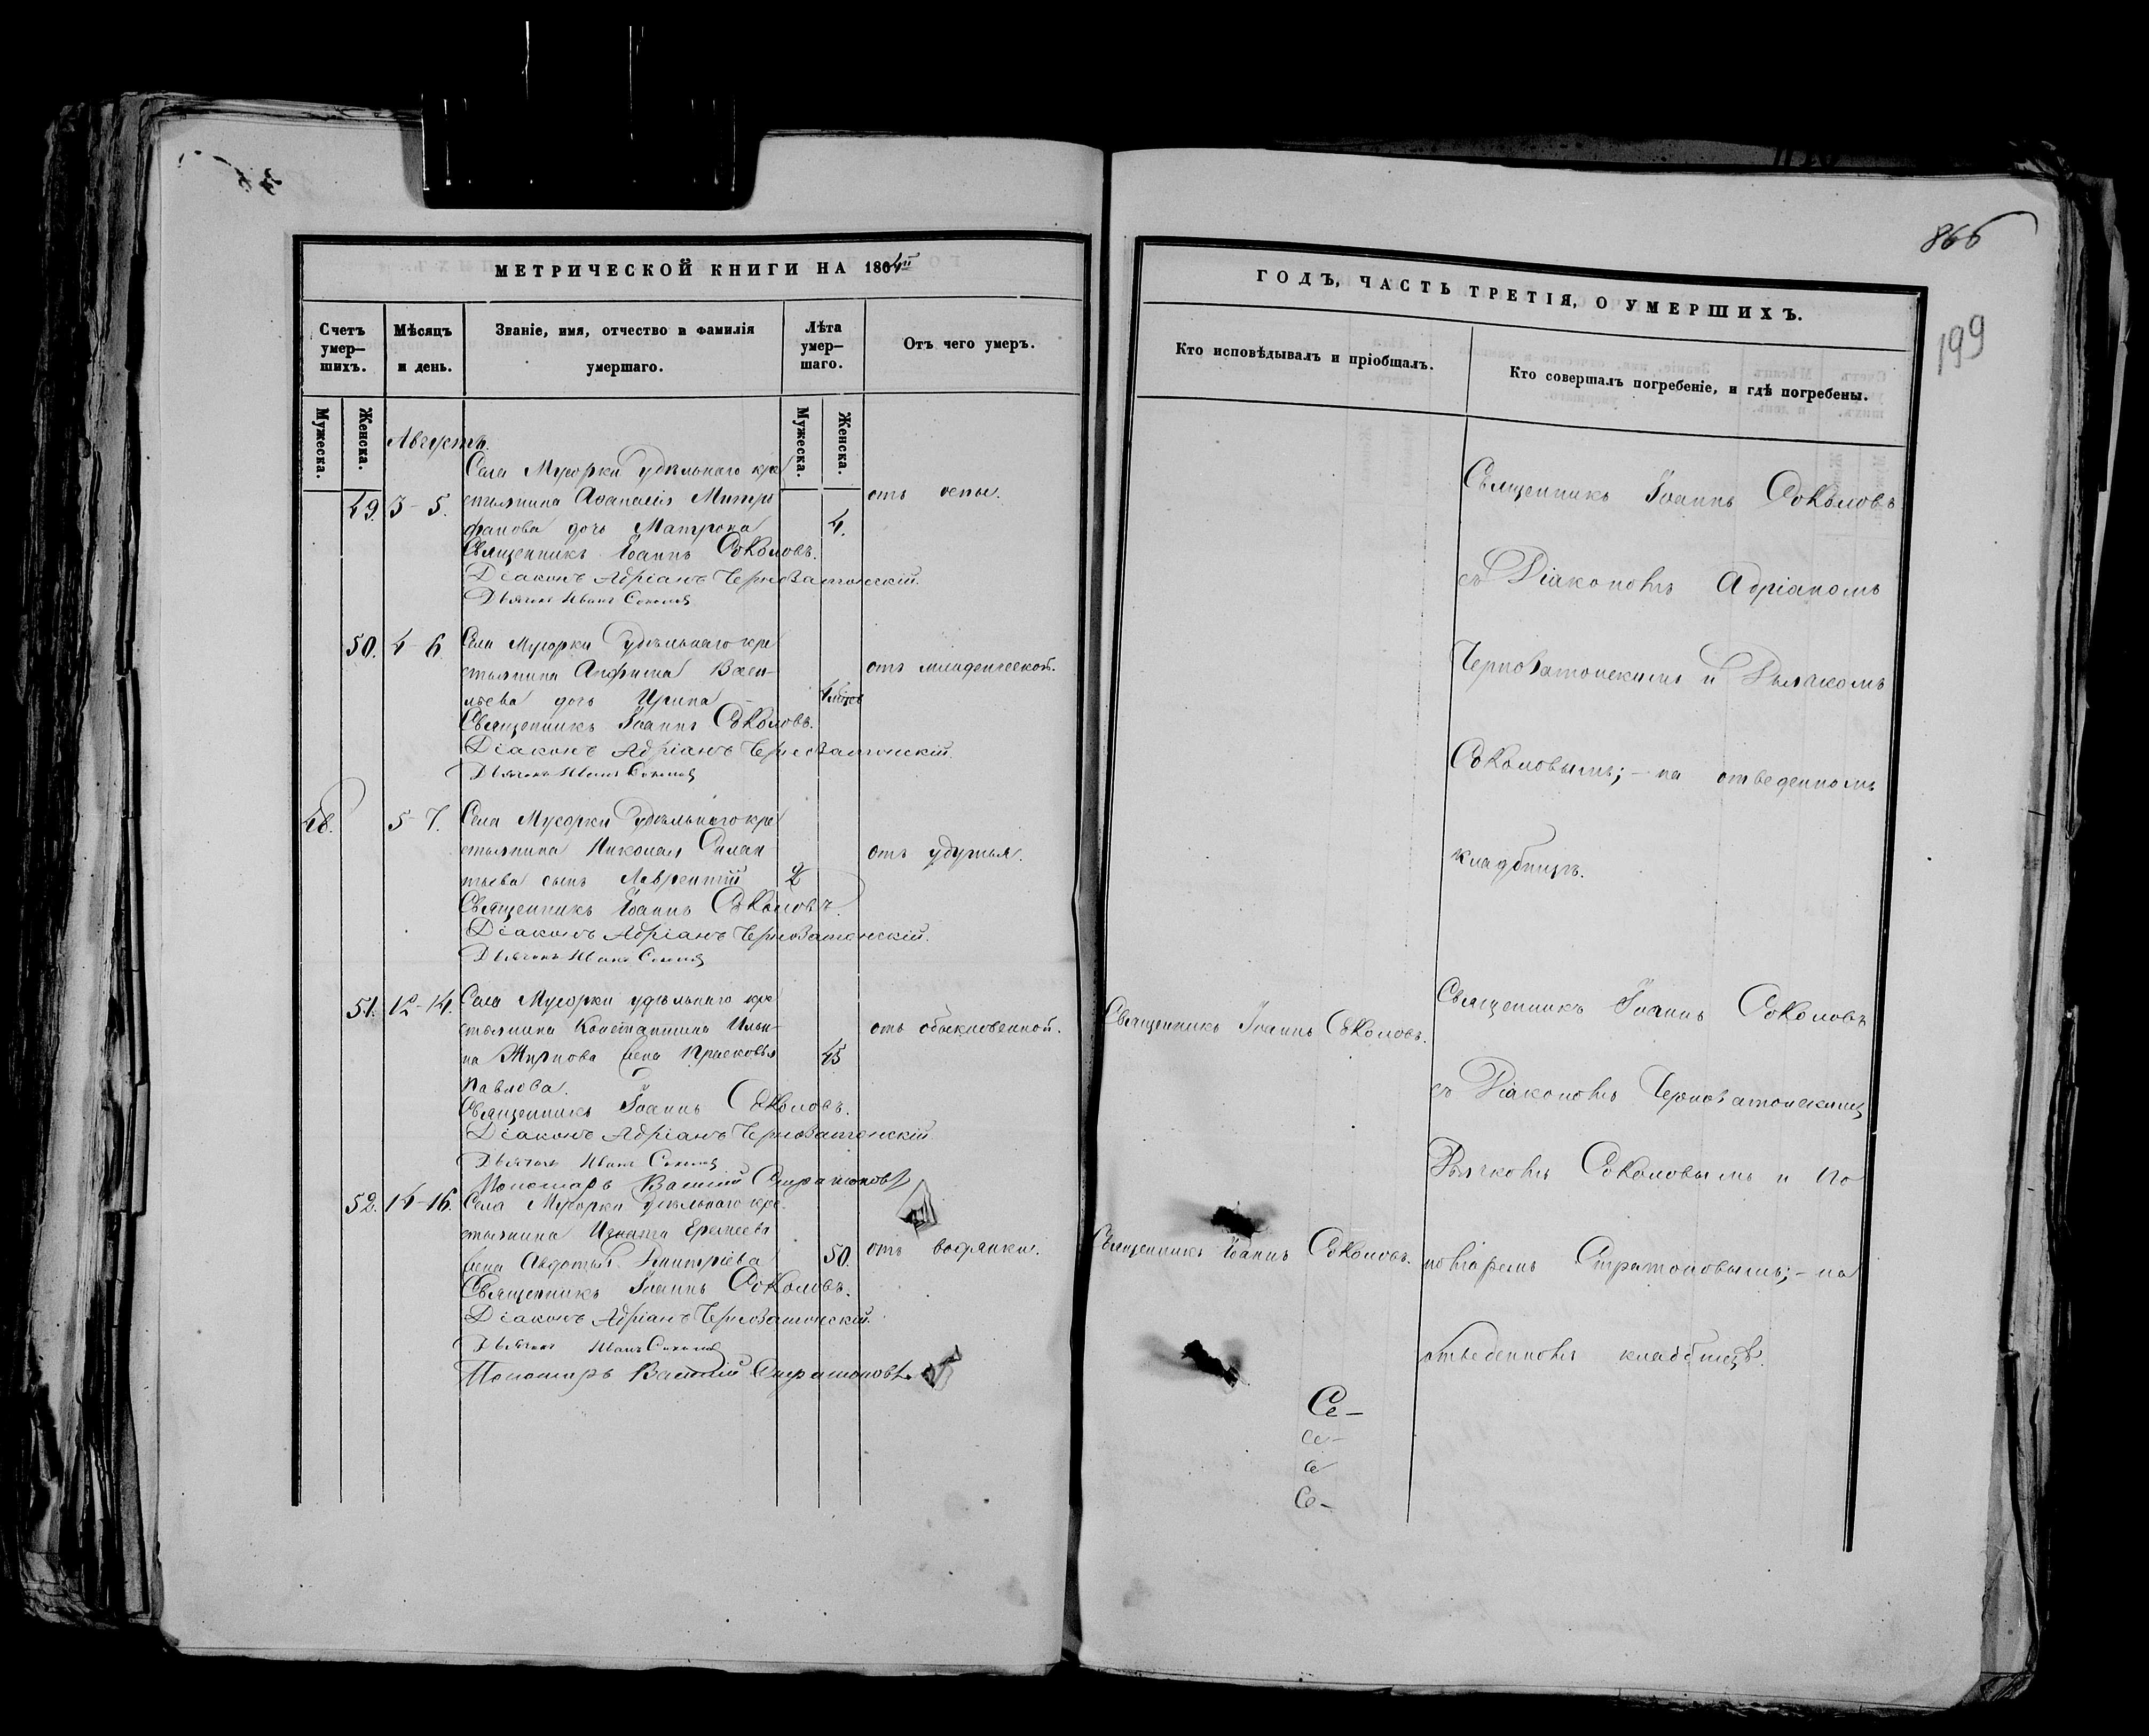 МЕТРИЧЕСКОЙ КНИГИ НА 1864й
Счетъ умер-шихъ.
Мѣсяцъ и день.
Званіе, имя, отчество и фамилія умершаго.
Лѣта умер-шаго.
Отъ чего умеръ.
Мужеска.
Женска.
Мужеска.
Женска.
Августъ.
Села Мусорки удѣльнаго кре
49. 3-5. стьянина Аѳанасія Митро отъ оспы.
фанова дочь Матрона 4.
Священникъ Іоаннъ Соколовъ.
Діаконъ Адріанъ Черноватонскій.
Дьячекъ Иванъ Соколовъ
50. 4-6 Села Мусорки Удѣльнаго кре
стьянина Анфима Васи- отъ младенческой.
льева дочь Ирина
Священникъ Іоаннъ Соколовъ.
Діаконъ Адріанъ Черноватонскій.
Дьячекъ Иванъ Соколовъ
48. 5-7. Села Мусорки Удѣльнаго кре
стьянина Николая Силан отъ удушья.
тьева сынъ Лаврентій 2
Священникъ Іоаннъ Соколовъ.
Діаконъ Адріанъ Черноватонскій.
Дьячекъ Иванъ Соколовъ
51. 12-14. Села Мусорки удѣльнаго кре
стьянина Константина Ильи- отъ обыкновенной.
на Жирнова жена Прасковья 45
Павлова.
Священникъ Іоаннъ Соколовъ.
Діаконъ Адріанъ Черноватонскій
Дьячекъ Иванъ Соколовъ
Пономарь Василій Стратоновъ
52. 14-16. Села Мусорки Удѣльнаго кре-
стьянина Игната Еремеева
жена Авдотья Дмитріева 50. отъ водянки.
Священникъ Іоаннъ Соколовъ.
Діаконъ Адріанъ Черноватонскій.
Дьячекъ Иванъ Соколовъ
Пономарь Василій Стратоновъ.
866
199
ГОДЪ, ЧАСТЬ ТРЕТІЯ, О УМЕРШИХЪ.
Кто исповѣдывалъ и пріобщалъ.
Кто совершалъ погребеніе, и гдѣ погребены.
Священникъ Іоаннъ Соколовъ
съ Діакономъ Адріаномъ
Черноватонскимъ и Дьячкомъ
Соколовымъ; - на отведенномъ
кладбищѣ.
Священникъ Іоаннъ Соколовъ
Священникъ Іоаннъ Соколовъ.
съ Діакономъ Черноватонскимъ
Дьячкомъ Соколовымъ и По
Священникъ Іоаннъ Соколовъ.
номаремъ Стратоновымъ; - на
отведенномъ кладбищѣ.
Се-
се-
се
Се-